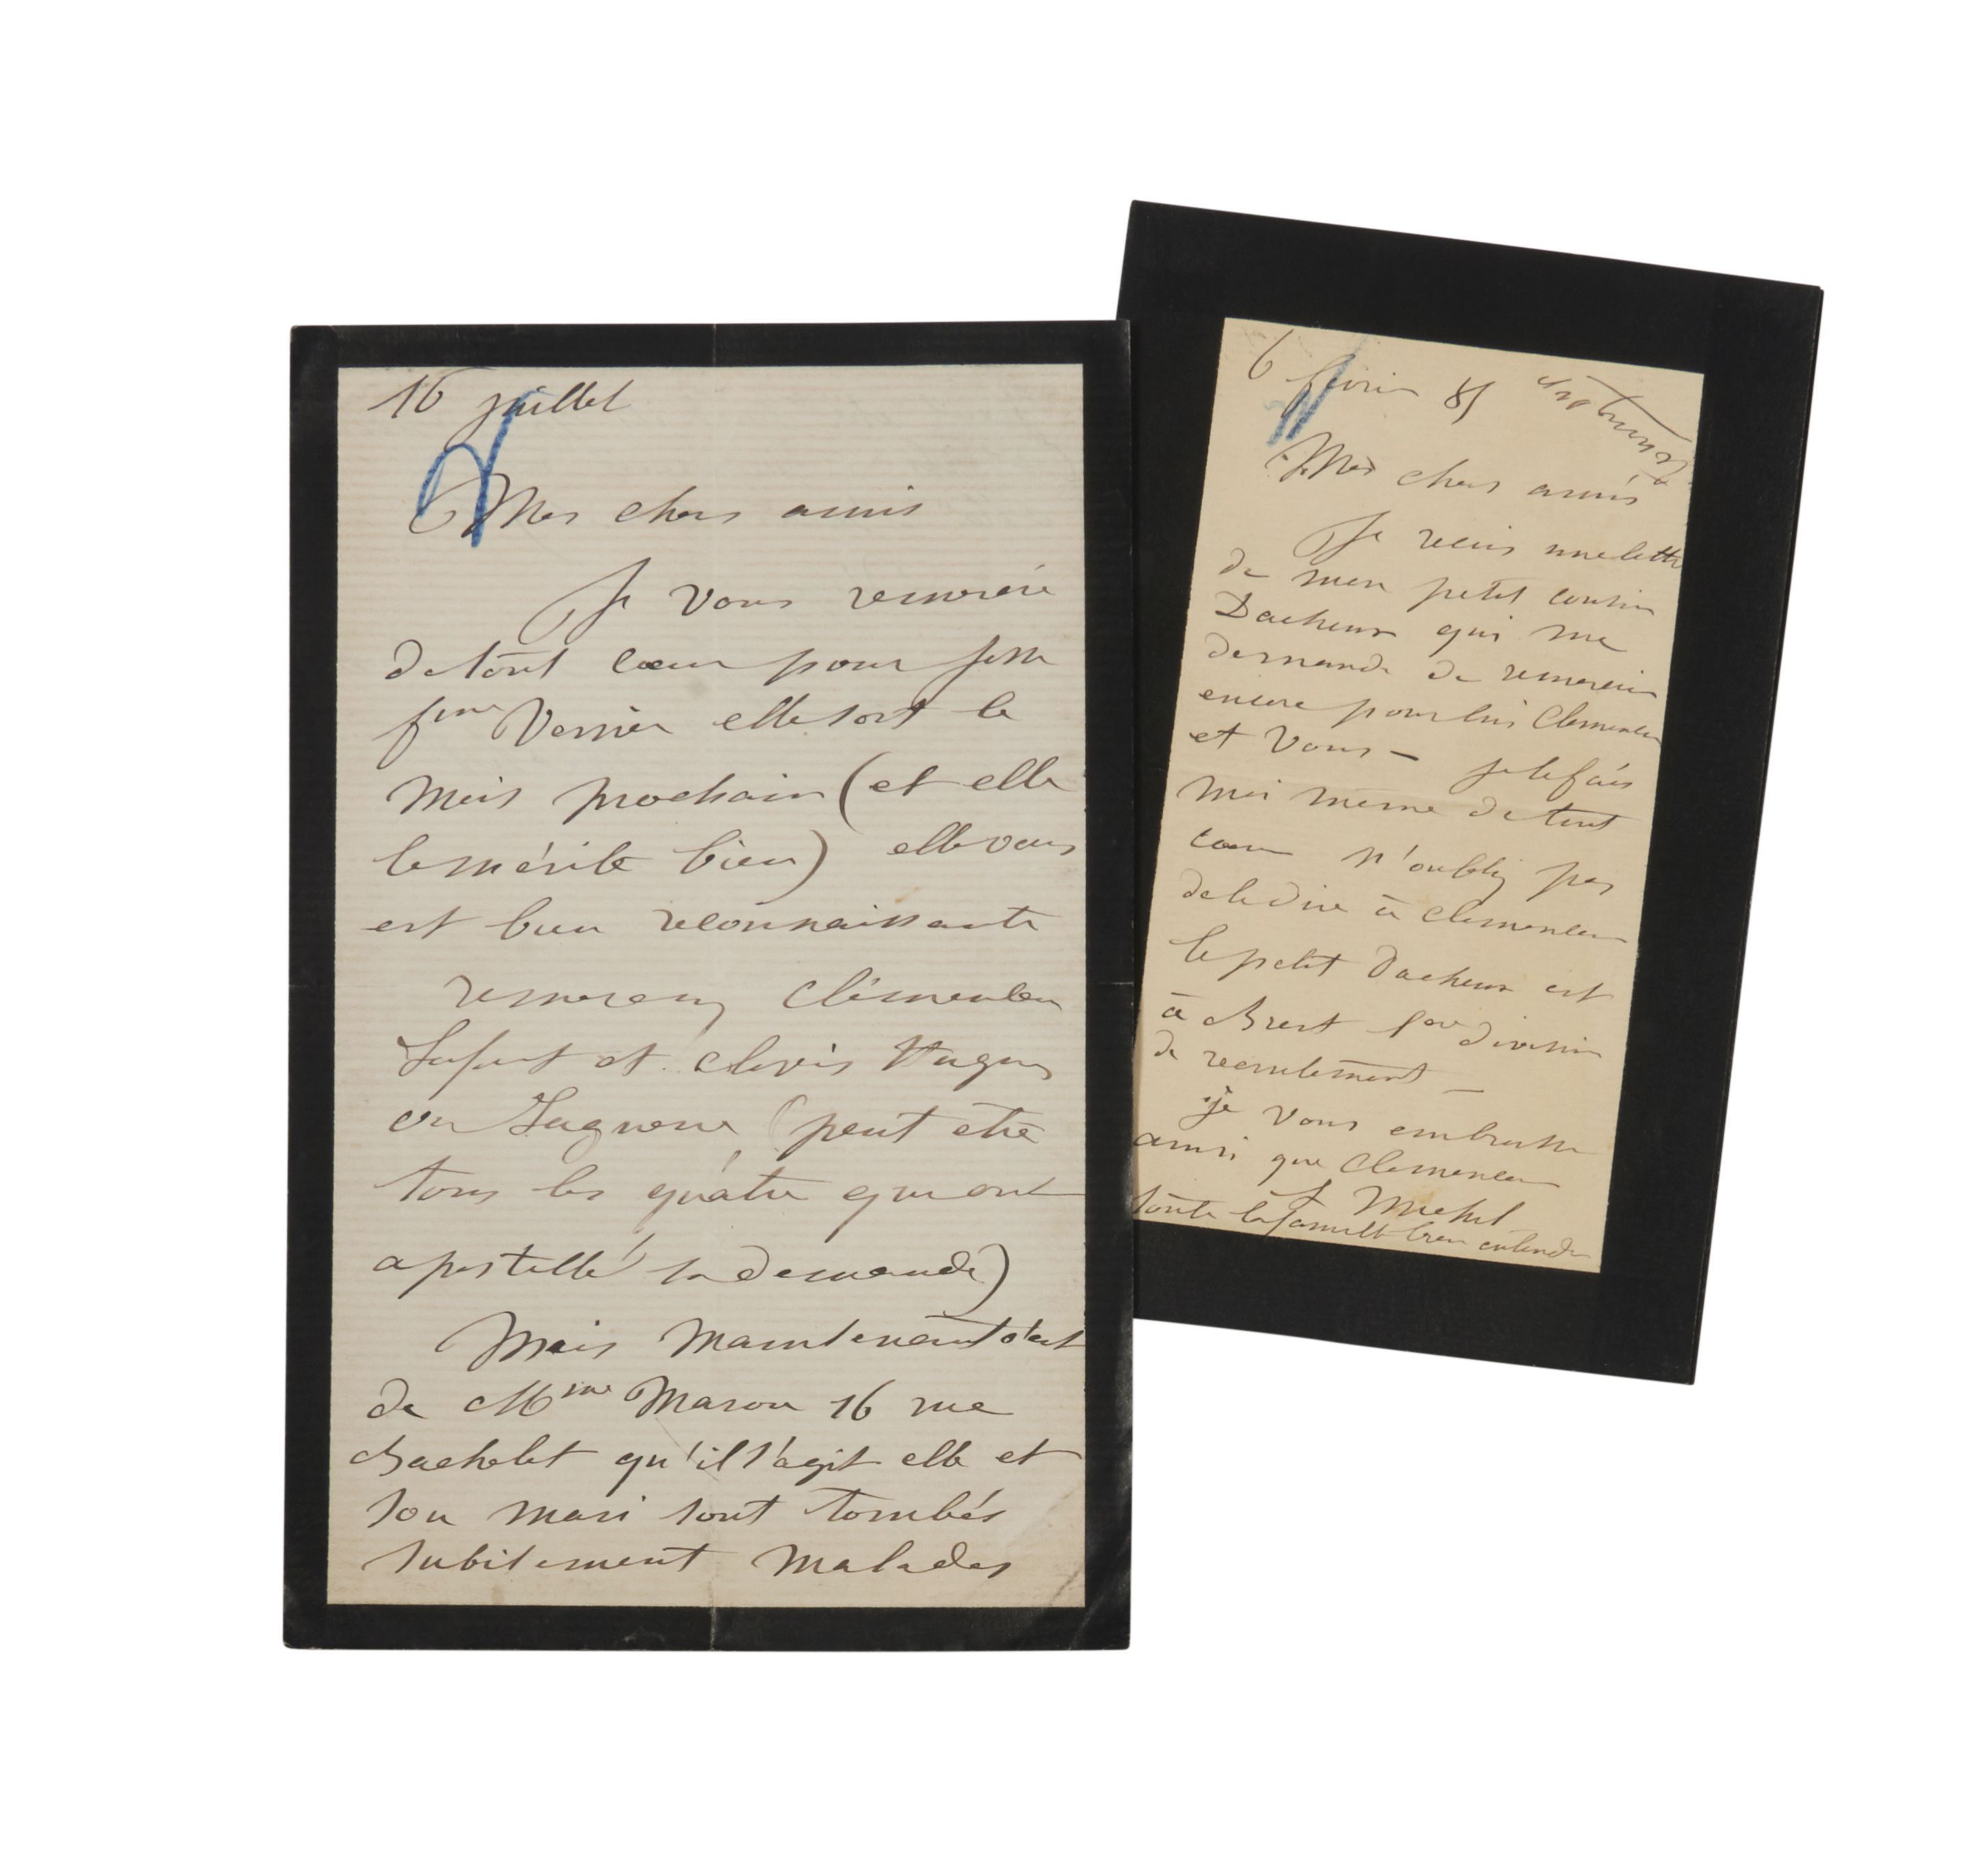 16 juillet
Mes chers amis
Je vous remercie
de tout cœur pour
fme Verrier elle sort le
mois prochain (et elle
le mérite bien) elle vous
est bien reconnaissante
remerciez Clémenceau
et Clovis Hugues
ou (peut être
tous les quatre qui ont
apostillé sa demande)
Mais maintenant c'est
de Mme Mason 16 rue
Bachelet qu'il s'agit elle et
son mari sont tombés
subitement malades
6 février 85
Mes chers amis
Je reçois une lettre
de mon petit cousin
Dacheux qui me
demande de remercier
encore pour lui Clemenceau
et vous – je le fais
moi même de tout
cœur n'oubliez pas
de le dire à Clemenceau
le petit Dacheux est
à Brest 1ere division
de recrutement –
je vous embrasse
ainsi que Clemenceau
L Michel
toute la famille bien entendu